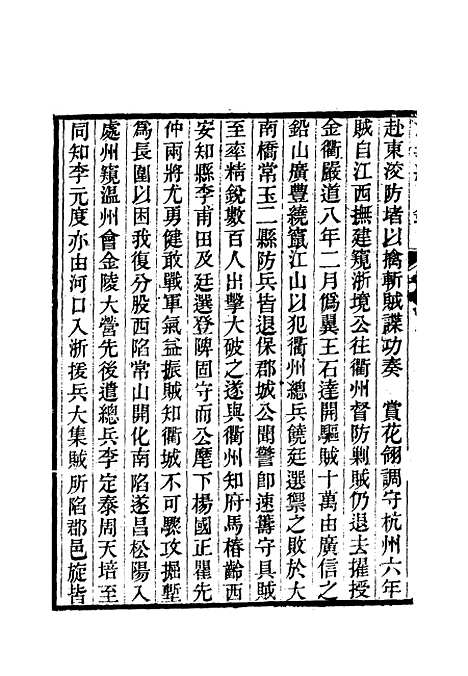 赴東浚防堵以擒斬賊諜功奏　賞花翎調守杭州六年
賊自江西撫建窺浙境公往衢州督防剿賊仍退去擢授
金衢嚴道八年二月僞翼王石達開驅賊十萬由廣信之
鉛山廣豐繞竄江山以犯衢州總兵饒廷選禦之敗於大
南橋常玉二縣防兵皆退保郡城公聞警卽速籌守具賊
至率精銳數百人出擊大破之遂與衢州知府馬椿齡西
安知縣李甫田及廷選登陴固守而公麾下楊國正瞿先
仲兩將尤勇健敢戰軍氣益振賊知衢城不可驟攻掘塹
爲長圍以困我復分股西陷常山開化南陷遂昌松陽入
處州窺溫州會金陵大營先後遣總兵李定泰周天培至
同知李元度亦由河口入浙援兵大集賊所陷郡邑旋皆